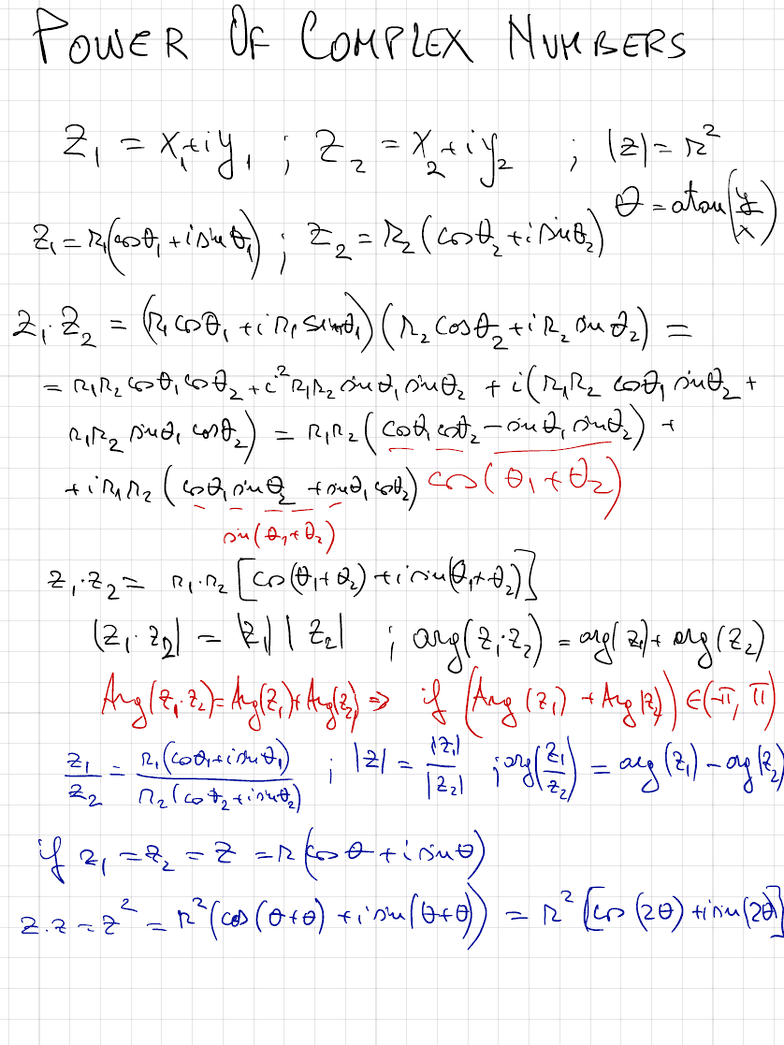 POWER OF COMPLEX NUMBERS
z₁ = x₁+iy₁ ; z₂ = x₂+iy₂ ; |z| = r²
θ = atan(y/x)
z₁ = r₁(cosθ₁ + i sin θ₁) ; z₂ = r₂(cosθ₂ + i sinθ₂)
z₁·z₂ = (r₁ cosθ₁ + i r₁ sinθ₁)(r₂ cosθ₂ + i r₂ sin θ₂) =
= r₁r₂ cosθ₁ cosθ₂ + i² r₁r₂ sinθ₁ sinθ₂ + i(r₁r₂ cosθ₁ sinθ₂ +
r₁r₂ sinθ₁ cosθ₂) = r₁r₂(cosθ₁ cosθ₂ − sinθ₁ sinθ₂) +
+ i r₁r₂ (cosθ₁ sinθ₂ + sinθ₁ cosθ₂) cos(θ₁+θ₂)
sin(θ₁+θ₂)
z₁·z₂ = r₁·r₂ [cos(θ₁+θ₂) + i sin(θ₁+θ₂)]
|z₁·z₂| = |z₁| |z₂| ; arg(z₁·z₂) = arg(z₁) + arg(z₂)
Arg(z₁·z₂) = Arg(z₁) + Arg(z₂) => if (Arg(z₁) + Arg(z₂)) ∈ (-π, π)
z₁/z₂ = r₁(cosθ₁+i sinθ₁)/r₂(cosθ₂+i sinθ₂) ; |z| = |z₁|/|z₂| ; arg(z₁/z₂) = arg(z₁) − arg(z₂)
if z₁ = z₂ = z = r(cos θ + i sinθ)
z.z = z² = r²(cos(θ+θ) + i sin(θ+θ)) = r² [cos(2θ) + i sin(2θ)]